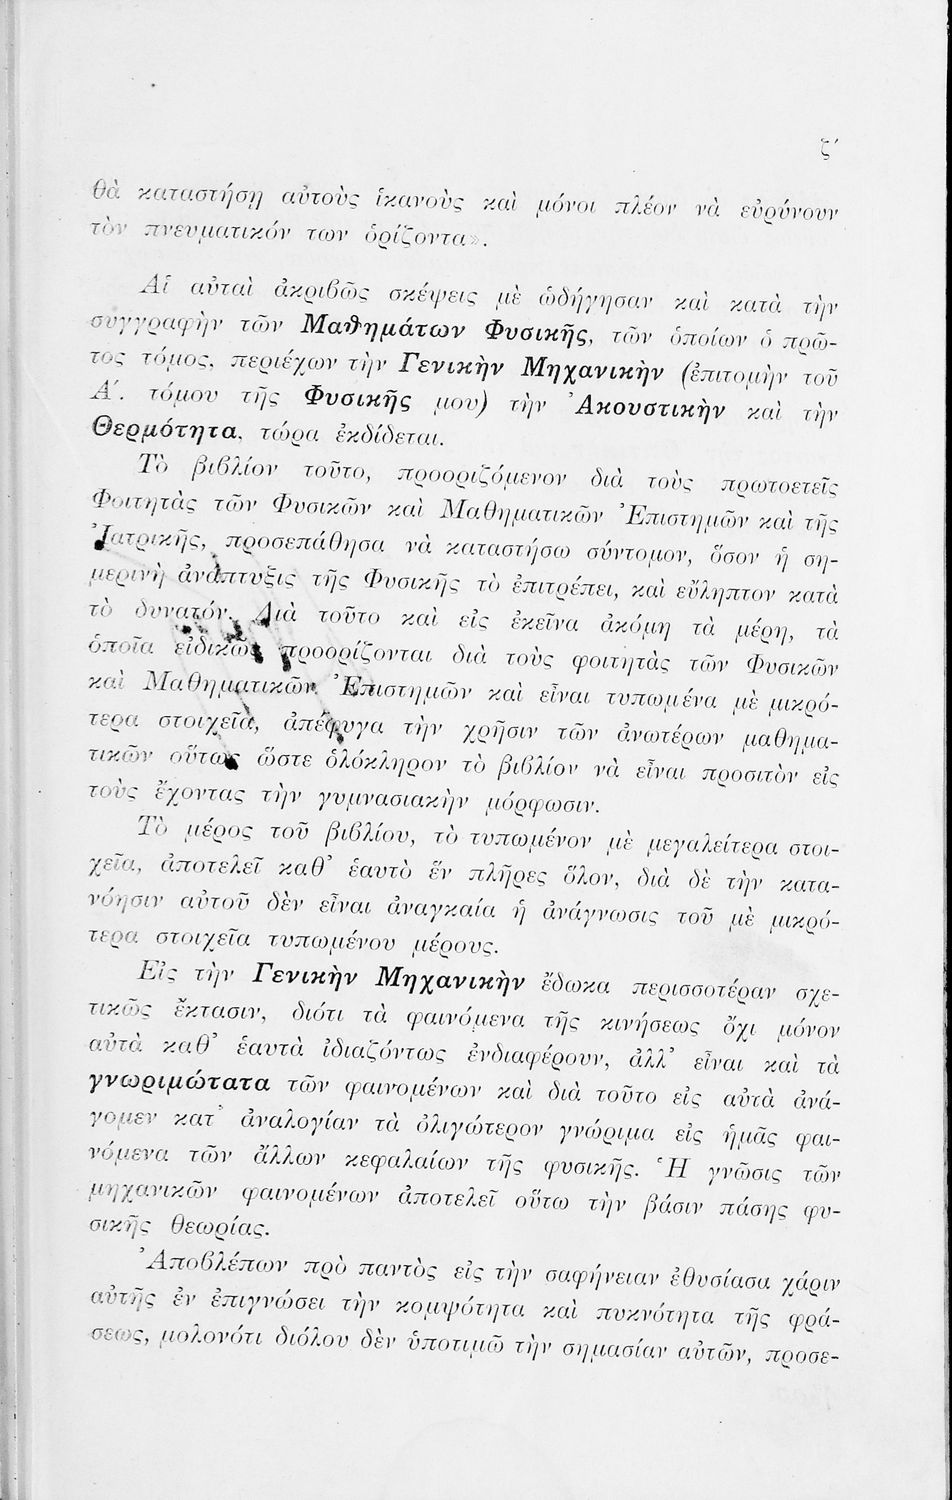 ζ´
θὰ καταστήσῃ αὐτοὺς ἱκανοὺς καὶ μόνοι πλέον νὰ εὐρύνουν
τὸν πνευματικόν των ὁρίζοντα».
Αἱ αὐταὶ ἀκριβῶς σκέψεις μὲ ὡδήγησαν καὶ κατὰ τὴν
συγγραφὴν τῶν Μαθημάτων Φυσικῆς, τῶν ὁποίων ὁ πρῶ-
τος τόμος, περιέχων τὴν Γενικὴν Μηχανικὴν (ἐπιτομὴν τοῦ
Α΄. τόμου τῆς Φυσικῆς μου) τὴν Ἀκουστικὴν καὶ τὴν
Θερμότητα, τώρα ἐκδίδεται.
Τὸ βιβλίον τοῦτο, προοριζόμενον διὰ τοὺς πρωτοετεῖς
Φοιτητὰς τῶν Φυσικῶν καὶ Μαθηματικῶν Ἐπιστημῶν καὶ τῆς
Ἰατρικῆς, προσεπάθησα νὰ καταστήσω σύντομον, ὅσον ἡ ση-
μερινὴ ἀνάπτυξις τῆς Φυσικῆς τὸ ἐπιτρέπει, καὶ εὔληπτον κατὰ
τὸ δυνατόν. Διὰ τοῦτο καὶ εἰς ἐκεῖνα ἀκόμη τὰ μέρη, τὰ
ὁποῖα εἰδικῶς προορίζονται διὰ τοὺς φοιτητὰς τῶν Φυσικῶν
καὶ Μαθηματικῶν Ἐπιστημῶν καὶ εἶναι τυπωμένα μὲ μικρό-
τερα στοιχεῖα, ἀπέφυγα τὴν χρῆσιν τῶν ἀνωτέρων μαθημα-
τικῶν οὕτως ὥστε ὁλόκληρον τὸ βιβλίον νὰ εἶναι προσιτὸν εἰς
τοὺς ἔχοντας τὴν γυμνασιακὴν μόρφωσιν.
Τὸ μέρος τοῦ βιβλίου, τὸ τυπωμένον μὲ μεγαλείτερα στοι-
χεῖα, ἀποτελεῖ καθ’ ἑαυτὸ ἓν πλῆρες ὅλον, διὰ δὲ τὴν κατα-
νόησιν αὐτοῦ δὲν εἶναι ἀναγκαία ἡ ἀνάγνωσις τοῦ μὲ μικρό-
τερα στοιχεῖα τυπωμένου μέρους.
Εἰς τὴν Γενικὴν Μηχανικὴν ἔδωκα περισσοτέραν σχε-
τικῶς ἔκτασιν, διότι τὰ φαινόμενα τῆς κινήσεως ὄχι μόνον
αὐτὰ καθ’ ἑαυτὰ ἰδιαζόντως ἐνδιαφέρουν, ἀλλ’ εἶναι καὶ τὰ
γνωριμώτατα τῶν φαινομένων καὶ διὰ τοῦτο εἰς αὐτὰ ἀνά-
γομεν κατ’ ἀναλογίαν τὰ ὀλιγώτερον γνώριμα εἰς ἡμᾶς φαι-
νόμενα τῶν ἄλλων κεφαλαίων τῆς φυσικῆς. Ἡ γνῶσις τῶν
μηχανικῶν φαινομένων ἀποτελεῖ οὕτω τὴν βάσιν πάσης φυ-
σικῆς θεωρίας.
Ἀποβλέπων πρὸ παντὸς εἰς τὴν σαφήνειαν ἐθυσίασα χάριν
αὐτῆς ἐν ἐπιγνώσει τὴν κομψότητα καὶ πυκνότητα τῆς φρά-
σεως, μολονότι διόλου δὲν ὑποτιμῶ τὴν σημασίαν αὐτῶν, προσε-